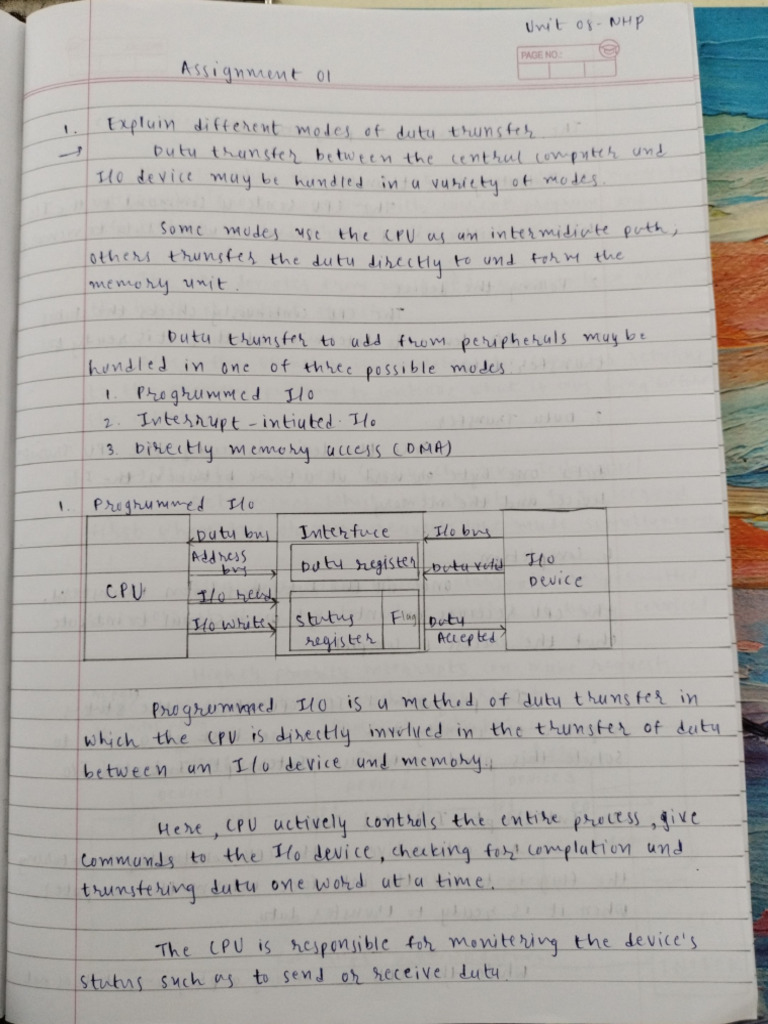 Unit 08 - NHP
PAGE NO.:
Assignment 01
1. Explain different modes of data transfer
→ Data transfer between the central computer and
I/O device may be handled in a variety of modes.
Some modes use the CPU as an intermidiate path,
others transfer the data directly to and form the
memory unit.
Data transfer to add from peripherals may be
handled in one of three possible modes
1. Programmed I/O
2. Interrupt - intiuted I/O
3. Directly memory access (DMA)
1. Programmed I/O
CPU
Data bus
Address
bus
I/O read
I/O write
Interface
Data register
Status
register
Flag
I/O bus
Data valid
Data
Accepted
I/O
Device
Programmed I/O is a method of data transfer in
which the CPU is directly involved in the transfer of data
between an I/O device and memory.
Here, CPU actively controls the entire process, give
commands to the I/O device, checking for complation and
transfering data one word at a time.
The CPU is responsible for monitering the device's
status such as to send or receive data.